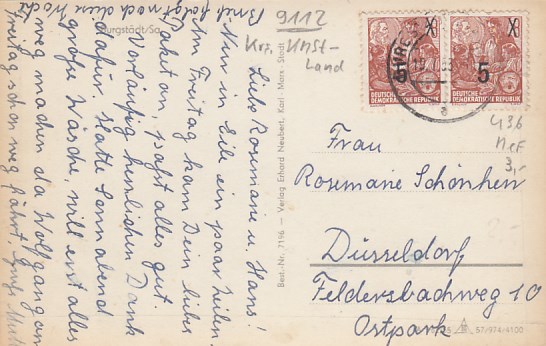 Burgstädt/Sa.
Liebe Rosemarie u. Hans!
Nur in Eile ein paar Zeilen.
Am Freitag kam Dein liebes
Paket an, passt alles gut.
Vorläufig herzlichen Dank
dafür. Hatte Sonnabend
große Wäsche, will erst alles
weg machen da Wolfgang am
Freitag schon weg fährt.
Brief folgt noch diese Woche
9112
Krs. Knst-
Land
Best.-Nr. 7196 — Verlag Erhard Neubert, Karl-Marx-Stadt
5
DEUTSCHE
DEMOKRATISCHE REPUBLIK
5
DEUTSCHE
DEMOKRATISCHE REPUBLIK
436
MeF
3,-
Frau
Rosemarie Schönhen
Düsseldorf
Feldersbachweg 10
Ostpark
57/974/4100